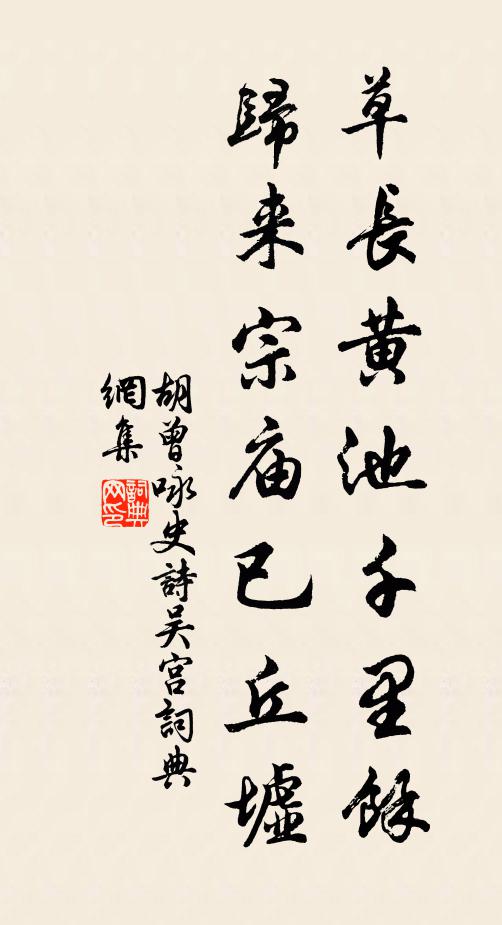 草長黄池千里餘
歸来宗庙已丘墟
胡曾咏史詩吴宫詞典
網集
詞典网印